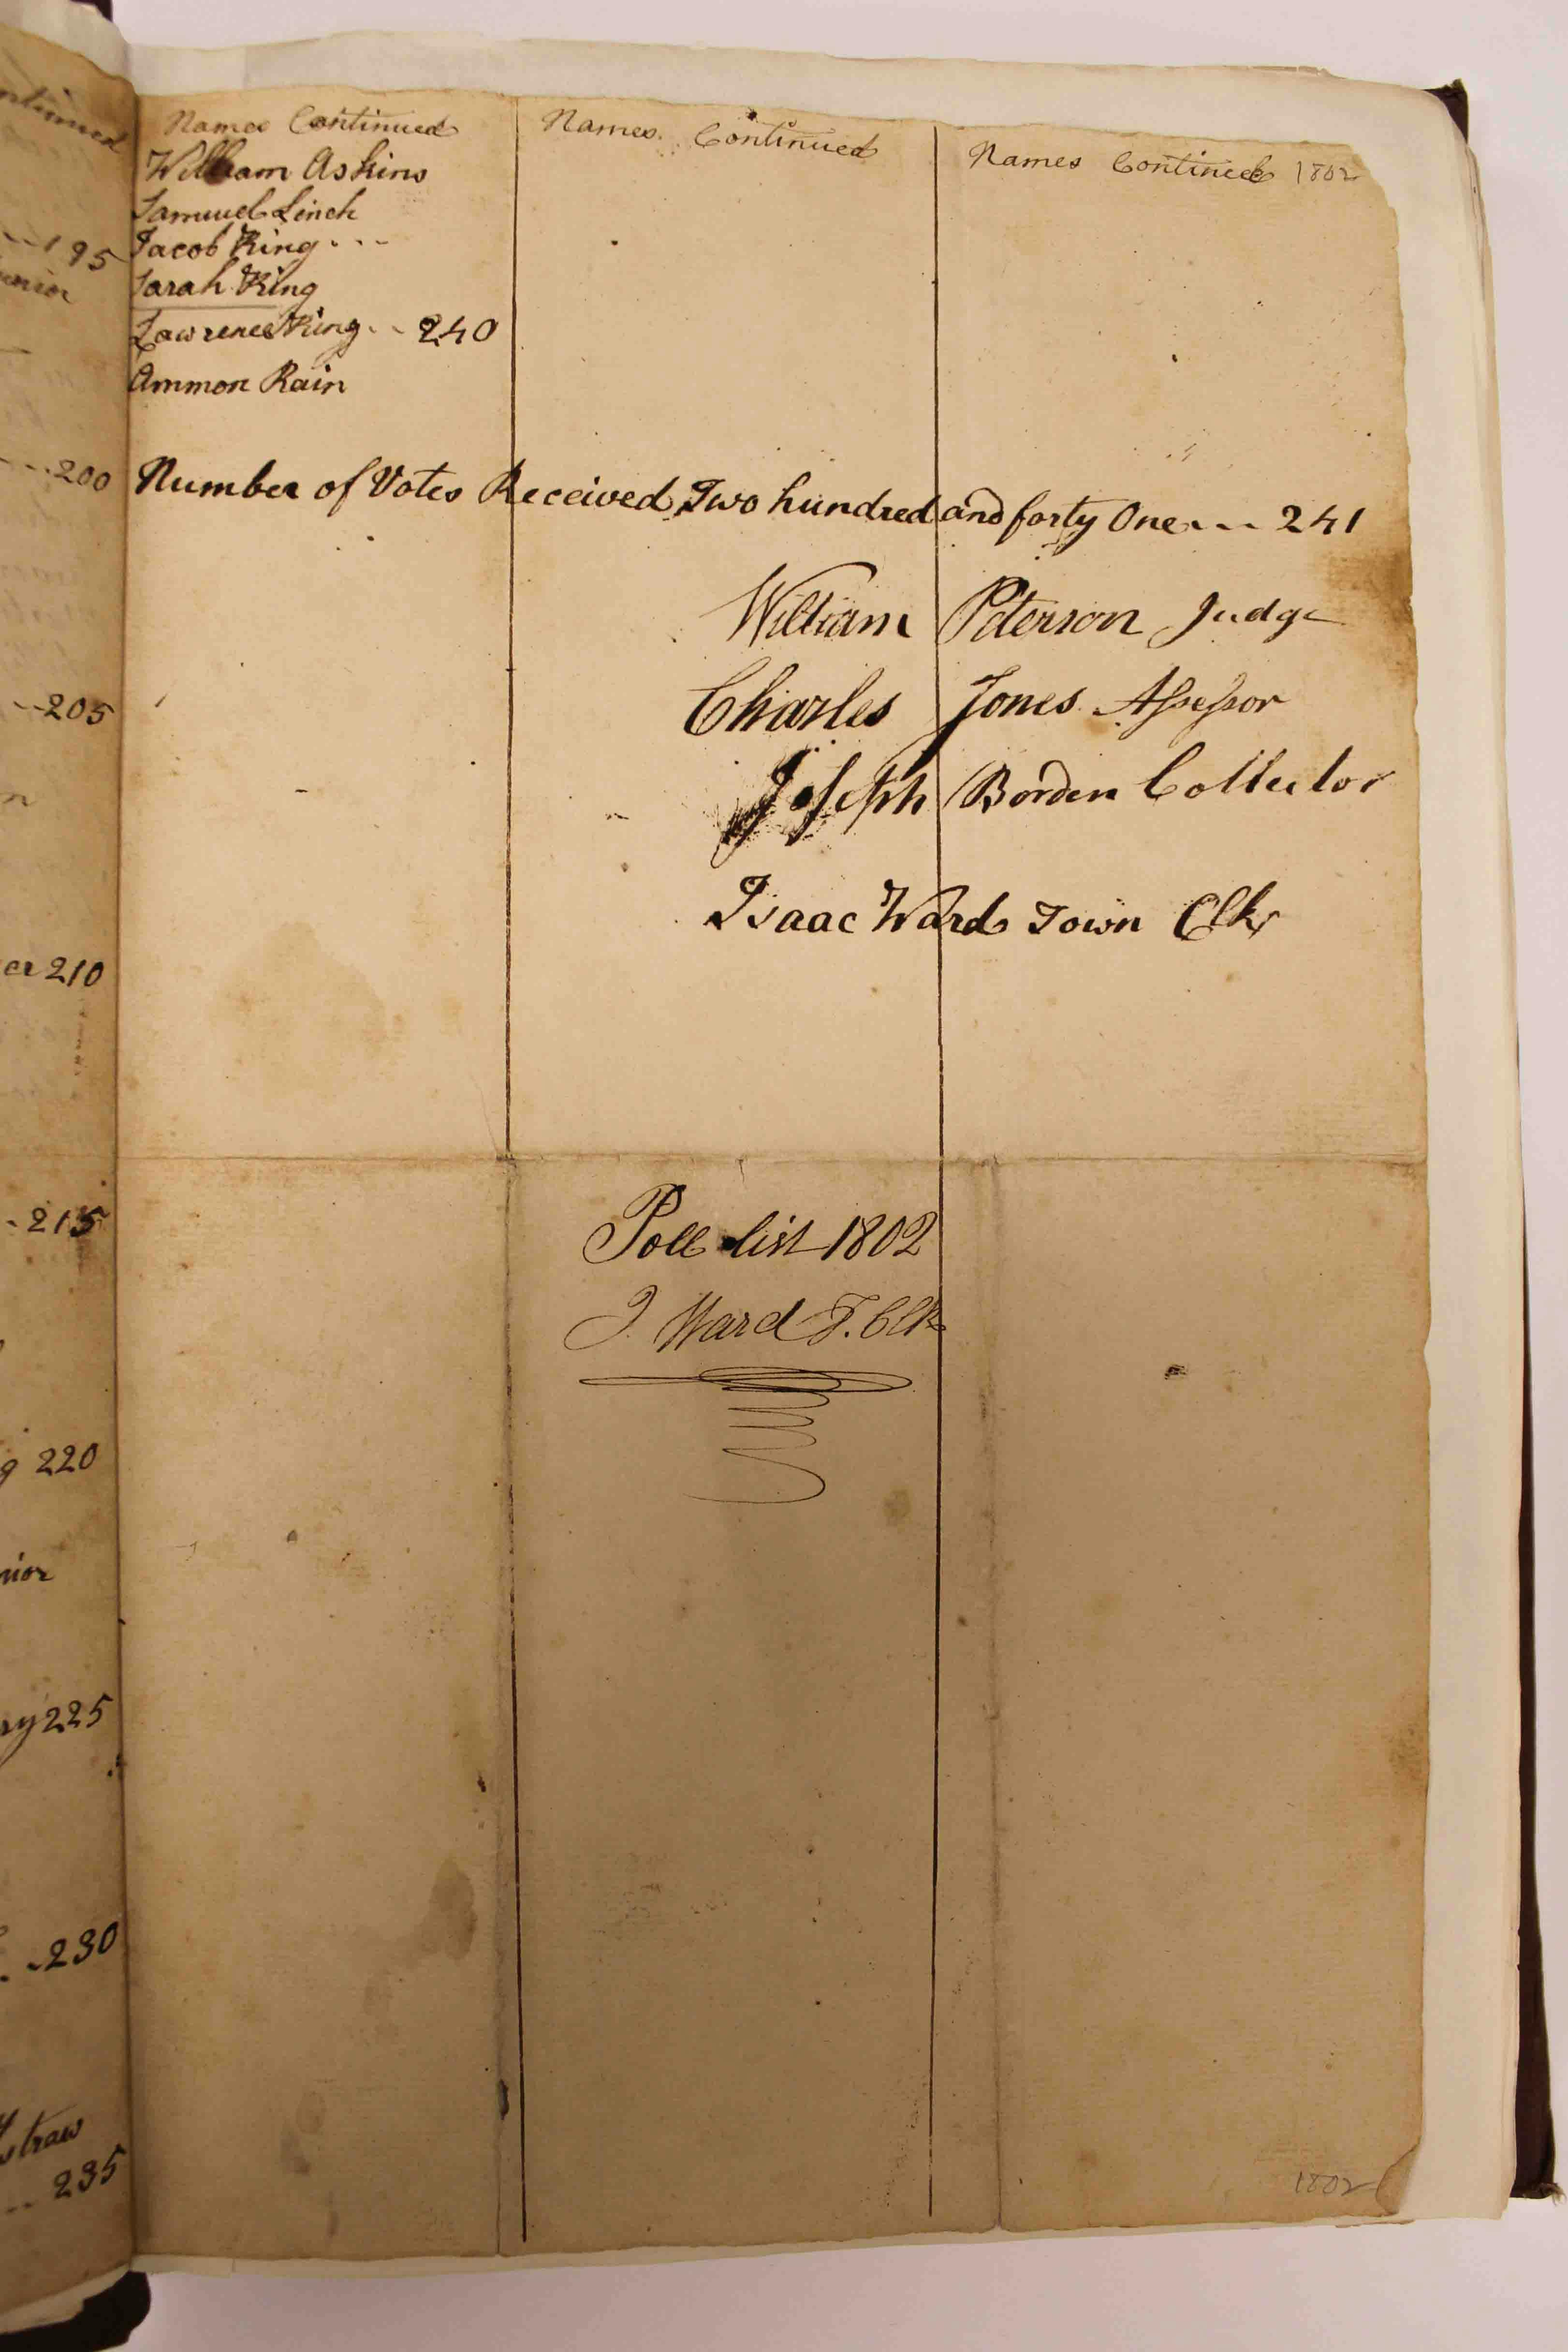 Names Continued
William Askins
Samuel Linch
Jacob King - - -
Sarah King
Lawrence King - - 240
Ammon Rain
Names Continued
Names Continued 1802
Number of Votes Received Two hundred and forty One - - - 241
William Peterson Judge
Charles Jones Assessor
Joseph Borden Collector
Isaac Ward Town Clk
Poll list 1802
I. Ward T. Clk
1802
195
200
205
210
215
220
225
230
straw
235